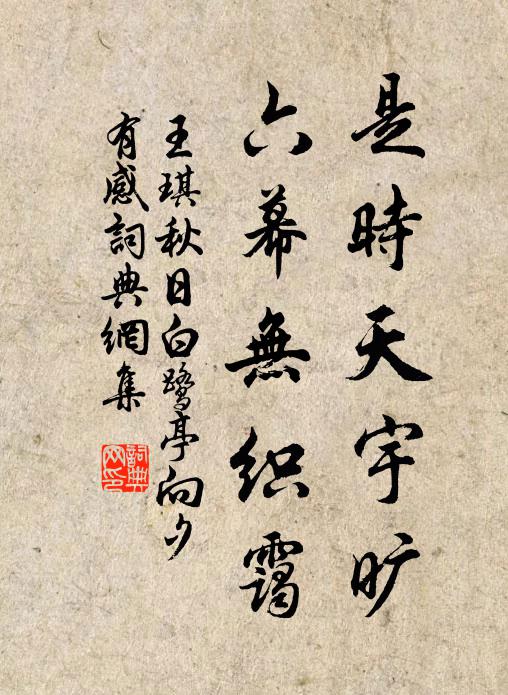 是時天宇旷
六幕無织靄
王琪秋日白鹭亭向夕
有感詞典網集
詞典
网印